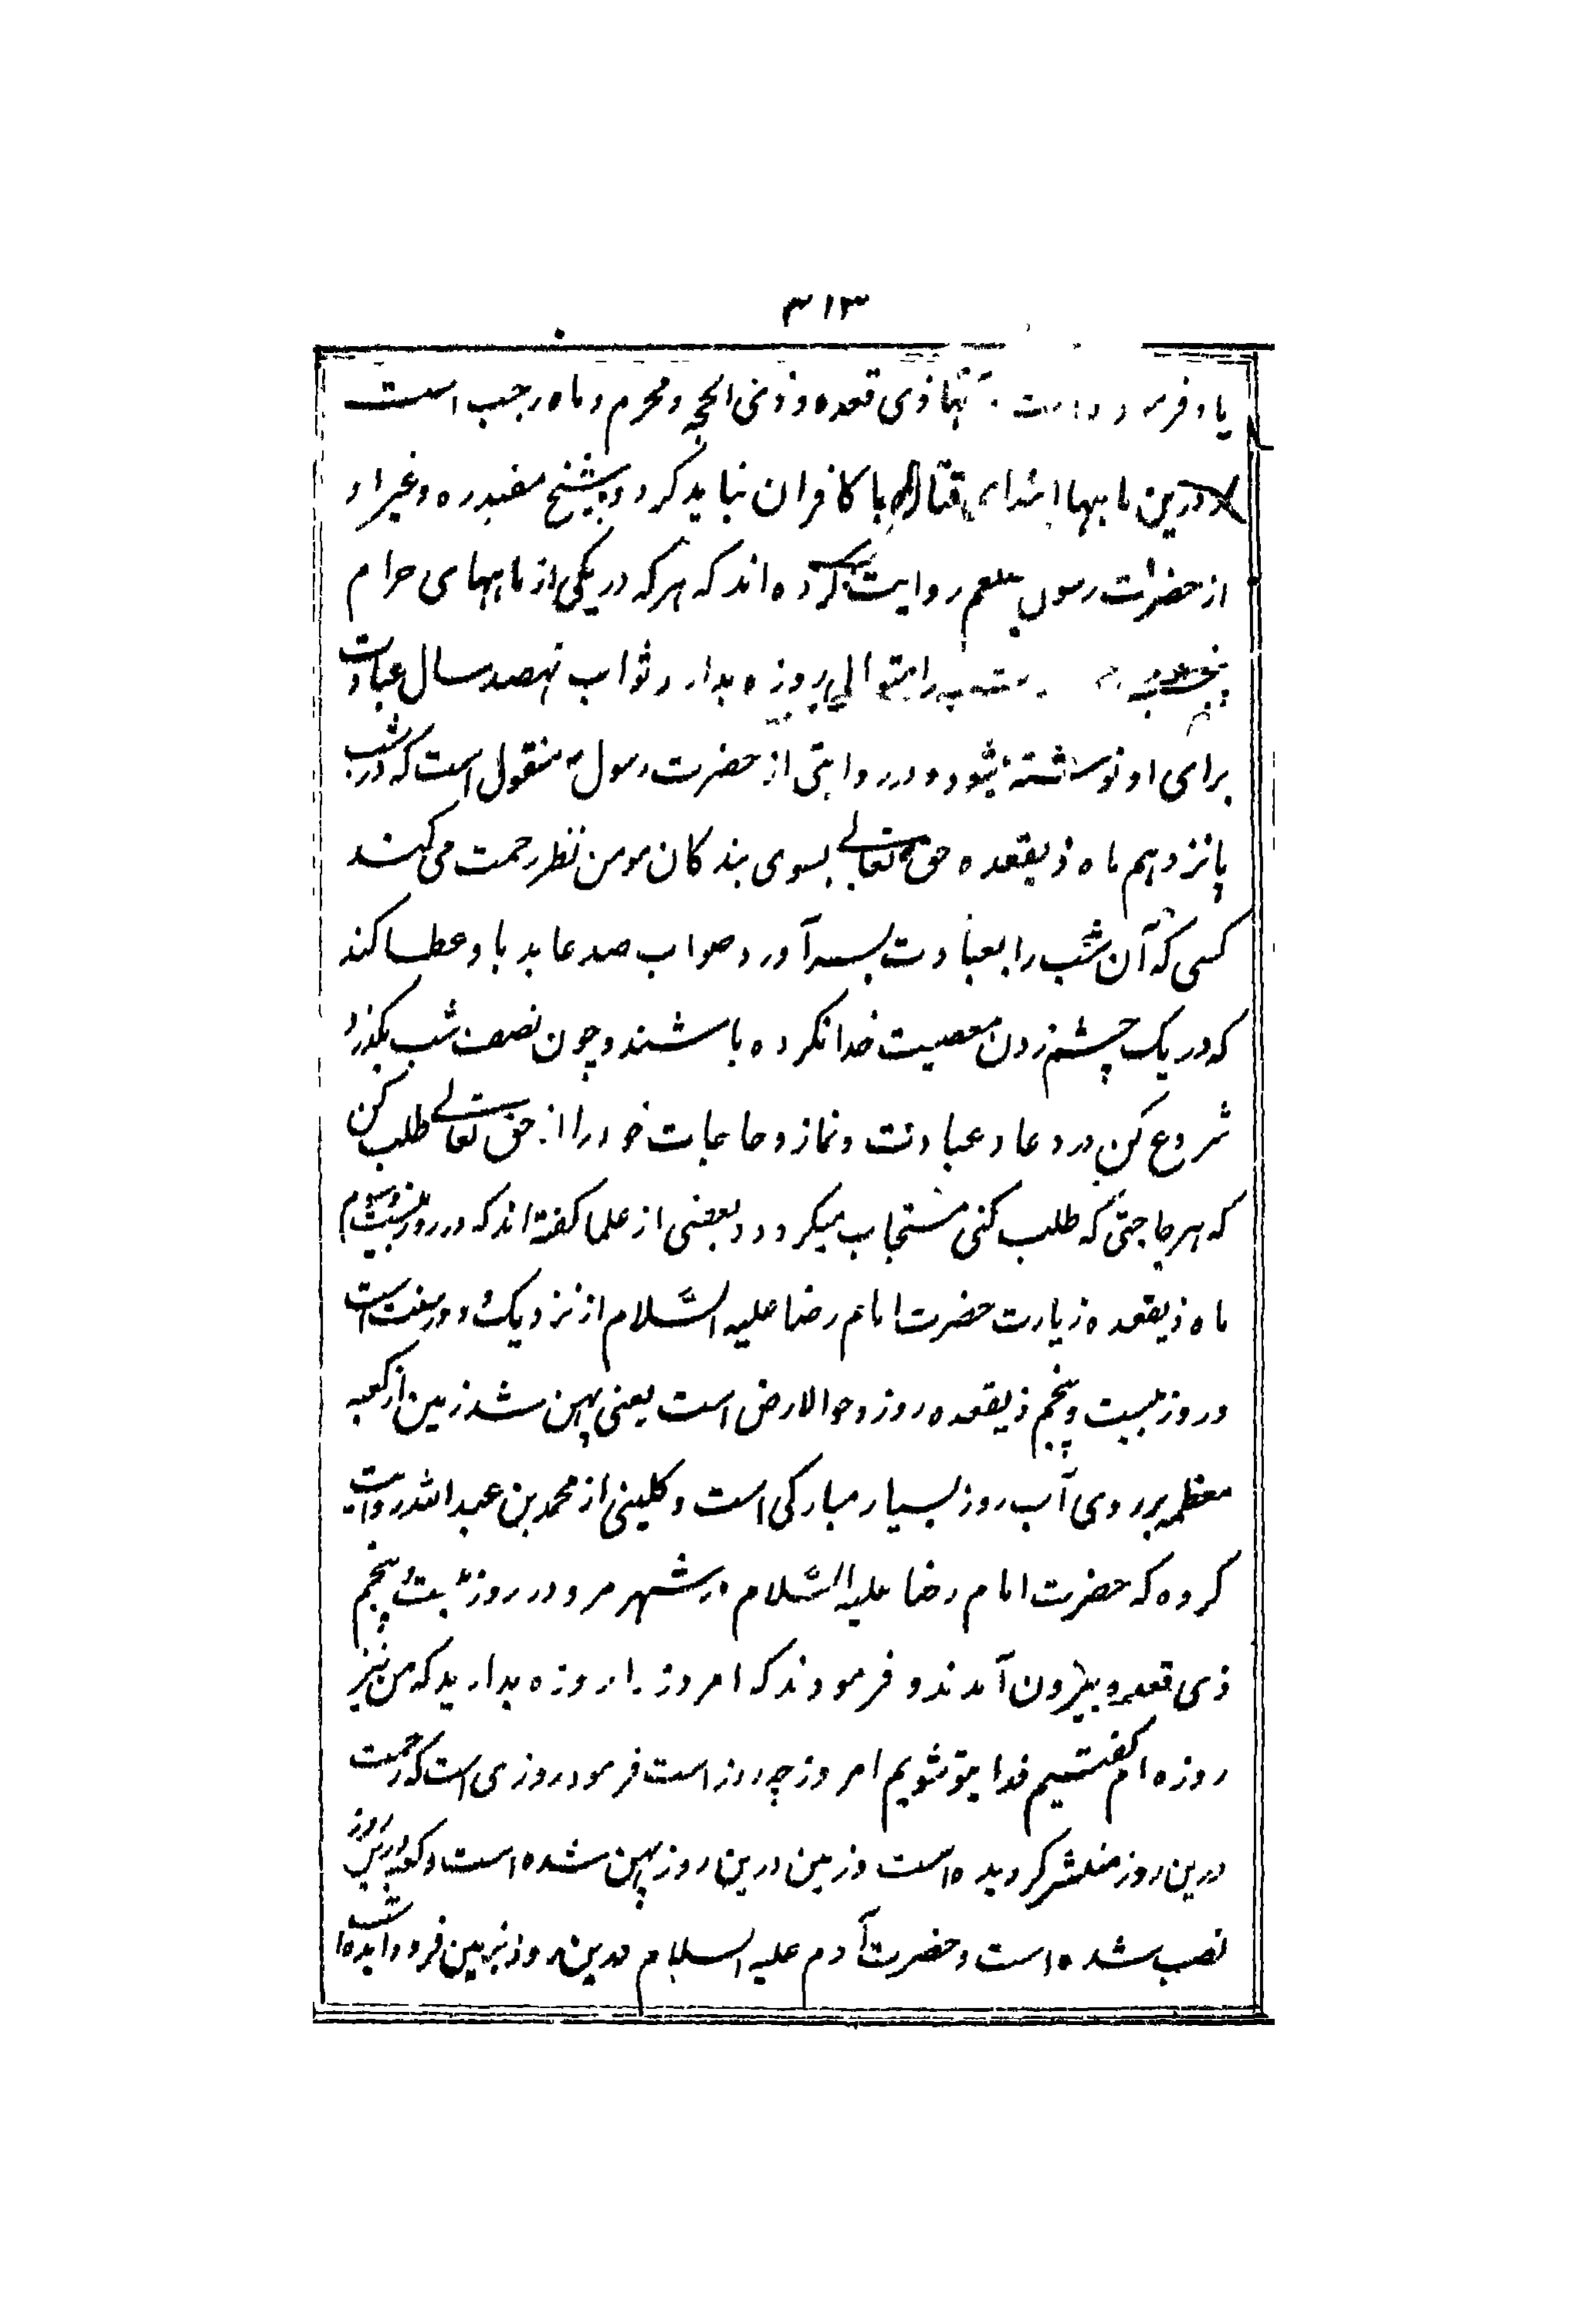 ۳۱۳
یاد فرموده است آنها ذی قعده و ذی الحجه و محرم و ماه رجب است
درین ماهها ابتدای قتال با کافران نباید کرد و شیخ مفید ره و غیر او
از حضرت رسول صلعم روایت کرده اند که هر که در یکی از ماههای حرام
را متوالی روزه بدارد ثواب نهصد سال عبادت
برای او نوشته شود و در روایتی از حضرت رسول ص منقول است که در شب
پانزدهم ماه ذیقعده حق تعالی بسوی بندکان مومن نظر رحمت می کند
کسی که آن شب را بعبادت بسر آورد صواب صد عابد باو عطا کند
که در یک چشم زدن معصیت خدا نکرده باشند و چون نصف شب بکذرد
شروع کن در دعا و عبادت و نماز و حاجات خود را از حق تعالی طلب کن
که هر حاجتی که طلب کنی مستجاب میکردد و بعضی از علما کفته اند که در روز بیست و سوم
ماه ذیقعده زیارت حضرت امام رضا علیه السلام از نزدیک و دور سنت است
و روز بیست و پنجم ذیقعده روز دحوالارض است یعنی پهن شد زمین از کعبه
معظمه بر روی آب روز بسیار مبارکی است و کلینی از محمد بن عبد الله روایت
کرده که حضرت امام رضا علیه السلام در شهر مرو در روز بیست و پنجم
ذی قعده بیرون آمدند و فرمودند که امروز را روزه بدارید که من نیز
روزه ام کفتیم فدا بتو شویم امروز چه روز است فرمود روزی است که رحمت
درین روز منتشر کردیده است و زمین درین روز پهن شده است و کعبه درین روز
نصب شده است و حضرت آدم علیه السلام درین روز بزمین فرود آمده است